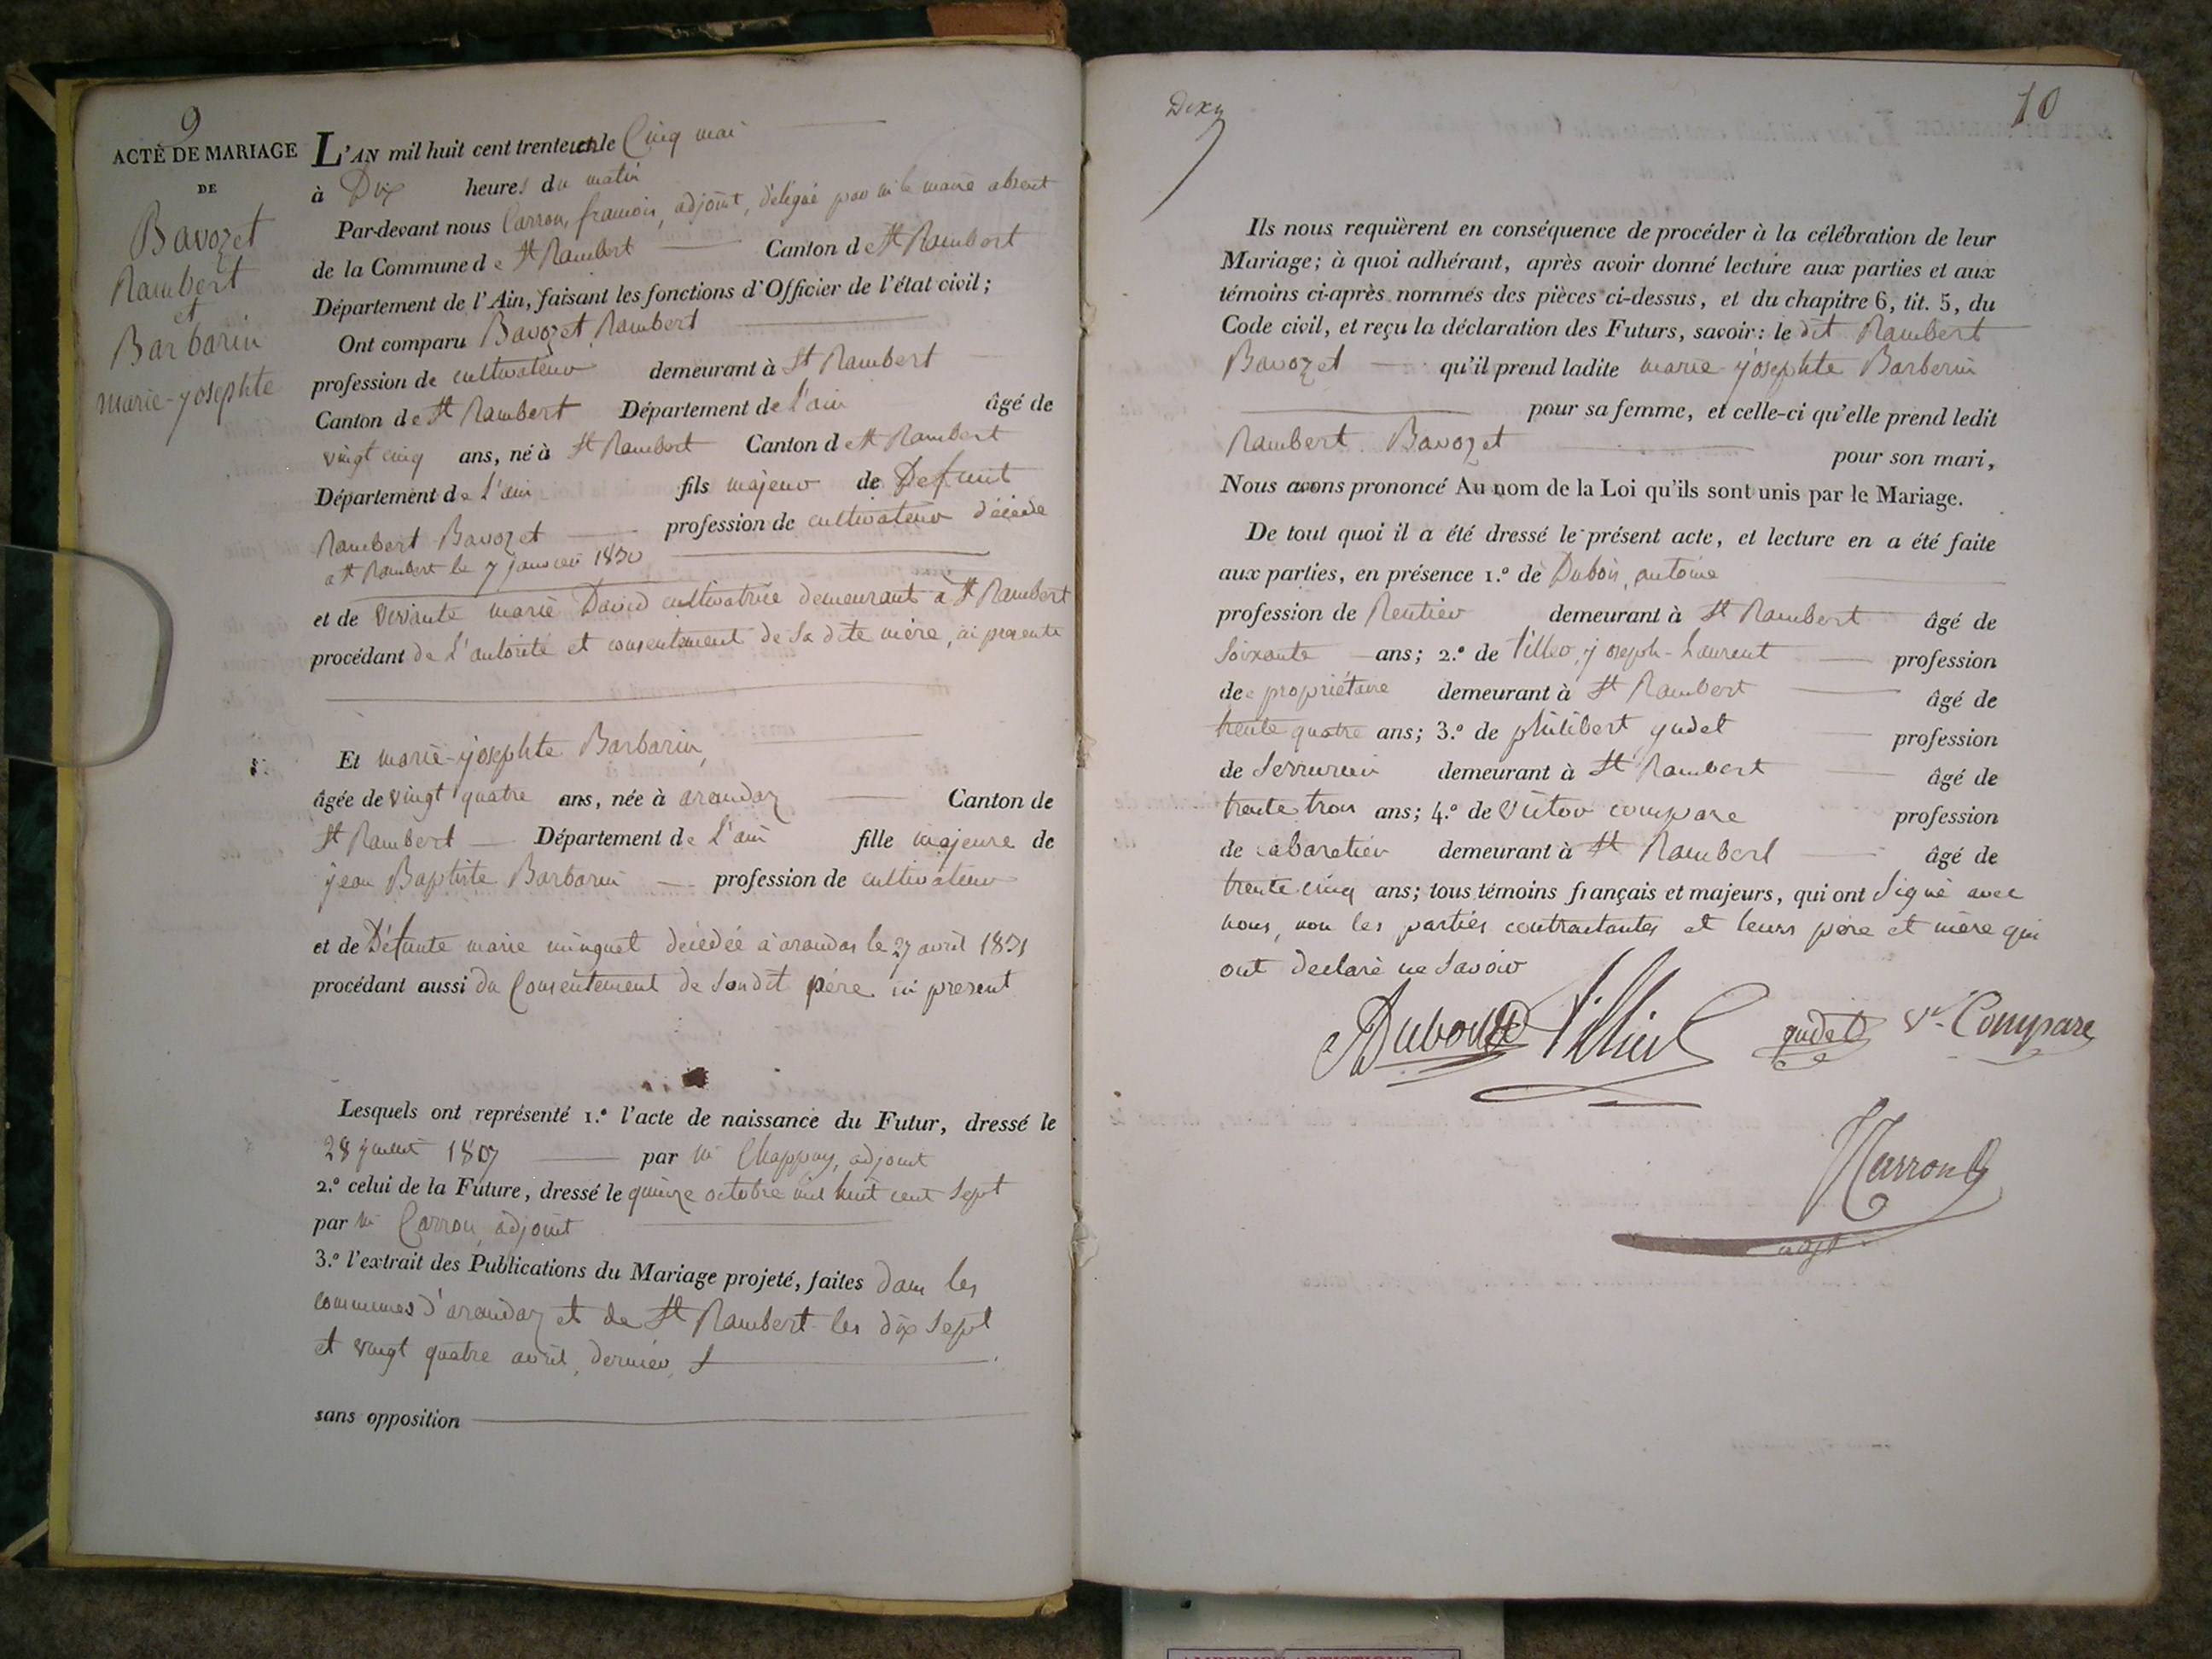 9
ACTE DE MARIAGE
DE
Bavozet
Rambert
et
Barbarin
marie-josephte
L'AN mil huit cent trente un le Cinq mai
à Dix heures du matin
Par-devant nous Carron, françois, adjoint, délégué par mr le maire absent
de la Commune de St Rambert Canton de St Rambert
Département de l'Ain, faisant les fonctions d'Officier de l'état civil;
Ont comparu Bavozet Rambert
profession de cultivateur demeurant à St Rambert
Canton de St Rambert Département de l'ain âgé de
vingt cinq ans, né à St Rambert Canton de St Rambert
Département de L'ain fils majeur de Defunt
Rambert Bavozet profession de cultivateur décédé
a St Rambert le 7 janvier 1830
et de vivante marie David cultivatrice demeurant à St Rambert
procédant de L'autorité et consentement de sa dite mère, ici presente
Et marie-josephte Barbarin,
âgée de vingt quatre ans, née à arandaz Canton de
St Rambert Département de L'ain fille majeure de
jean Baptiste Barbarin profession de cultivateur
et de Défunte marie minguet décédée à arandas le 27 avril 1831
procédant aussi du Consentement de son dit père ici present
Lesquels ont représenté 1.º l'acte de naissance du Futur, dressé le
28 1807 par mr Chappuy, adjoint
2.º celui de la Future, dressé le quinze octobre mil huit cent sept
par mr Carron, adjoint
3.º l'extrait des Publications du Mariage projeté, faites dans les
communes d'arandaz et de St Rambert les dix sept
et vingt quatre avril, dernier
sans opposition
10
Ils nous requièrent en conséquence de procéder à la célébration de leur
Mariage; à quoi adhérant, après avoir donné lecture aux parties et aux
témoins ci-après nommés des pièces ci-dessus, et du chapitre 6, tit. 5, du
Code civil, et reçu la déclaration des Futurs, savoir: le dit Rambert
Bavozet qu'il prend ladite marie josephte Barberin
pour sa femme, et celle-ci qu'elle prend ledit
Rambert Bavozet
pour son mari,
Nous avons prononcé Au nom de la Loi qu'ils sont unis par le Mariage.
De tout quoi il a été dressé le présent acte, et lecture en a été faite
aux parties, en présence 1.º de Dubois, antoine
profession de Rentier demeurant à St Rambert âgé de
soixante ans; 2.º de Tillier, joseph-Laurent profession
de propriétaire demeurant à St Rambert âgé de
trente quatre ans; 3.º de philibert gudet profession
de Serrurier demeurant à St Rambert âgé de
trente trois ans; 4.º de victor compare profession
de cabaretier demeurant à St Rambert âgé de
trente cinq ans; tous témoins français et majeurs, qui ont signé avec
nous, non les parties contractantes et leurs père et mère qui
ont declaré ne savoir
Dubois Tillier gudet Vr Compare
Carron
adjt